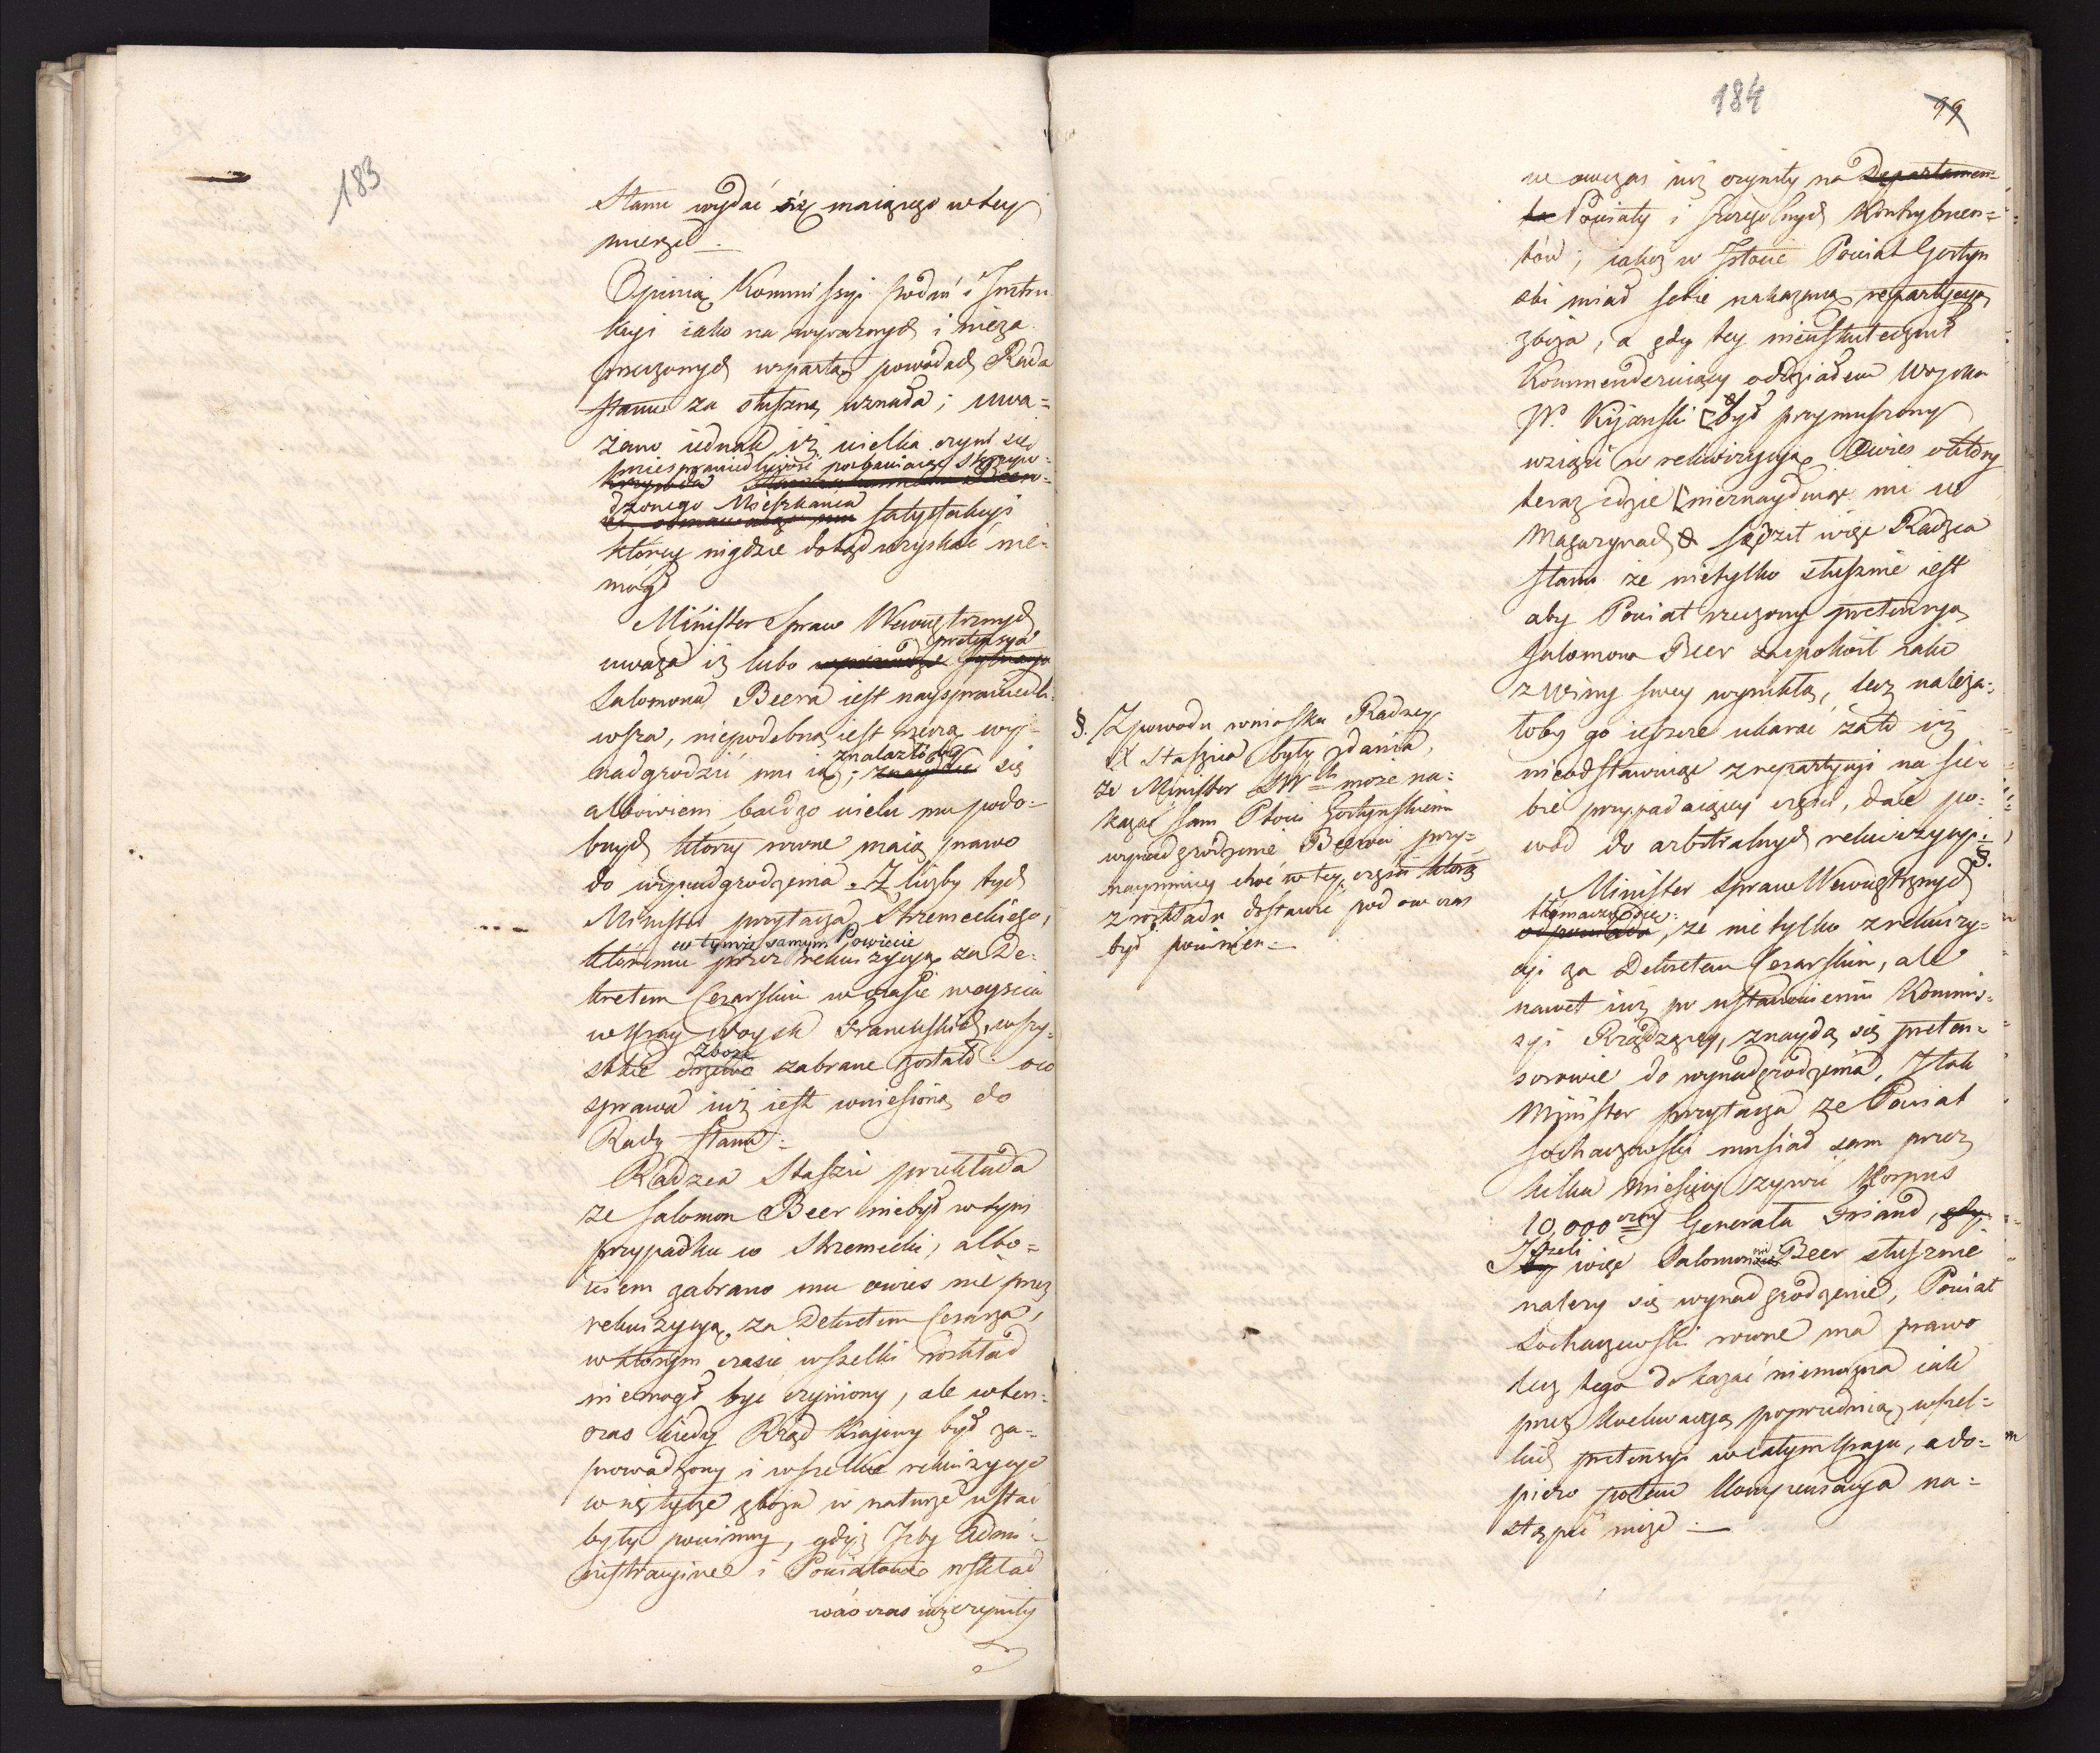 183
Stanu wydać się maiącego w tey
mierze.
Opinią Kommissyi Podań i Instru
kcyi iako na wyraznych i nieza
przeczonych wspartą powodach Rada
Stanu za słuszną uznała; uwa=
żano iednak iż wielka czyni się
niesprawiedliwość pozbawiaiąc Skrzyw=
krzywda
dzonego Mieszkańca
satysfakcyi
którey nigdzie dotąd uzyskać nie=
mógł
Minister Spraw Wewnętrznych
pretensya
uważa iż lubo
Salomona Beera iest naysprawiedli=
wsza, niepodobną iest rzeczą wy=
znalazłoby
nadgrodzić mu ią; znaydzie się
albowiem bardzo wielu mu podo=
bnych którzy równe maią prawo
do wynadgrodzenia. Z liczby tych
Minister przytacza Skrzeneckiego,
w tymże samym Powiecie
któremu przez rekwizycyą za De=
kretem Cesarskim w czasie weyscia
w Kray Woysk Francuskich, wszy=
zboże
stkie drzewo zabrane zostało o co
sprawa iuż iest wniesiona do
Rady Stanu.
Radzca Staszic przekłada
ze Salomon Beer niebył w tym
przypadku co Skrzenecki, albo=
wiem zabrano mu owies nie przez
rekwizycyą za Dekretem Cesarza,
w którym czasie wszelki rozkład
niemógł być czyniony, ale wten=
czas kiedy Rząd Krajowy był za=
prowadzony i wszelkie rekwizycye
w nętyze zboża in naturze ustać
były powinny, gdyż Izby Admi=
nistracyjne i Powiatowe rozkład
wówczas iuż czyniły
184
99
we owczas iuż czyniły na Departamen=
ta Powiaty i szczególnych Kontrybuen=
tów; iakoż w Istocie Powiat Gostyn
ski miał sobie nakazaną repartycyą
zboża, a gdy tey nieuskutecznił
Kommenderuiący oddziałem Woyska
W. Kijanski był przymuszony
wziąść w rekwizycyą Owies o który
teraz idzie nieznayduiąc nic w
Magazynach sądził więc Radzca
Stanu że nietylko słusznie iest
aby Powiat rzeczony pretensyą
Salomona Beer zaspokoił iako
z winy swey wynikłą, lecz należa=
łoby go ieszcze ukarać za to iż
nieodstawuiąc z repartycyi na sie=
bie przypadaiącey części, dał po=
wód do arbitralnych rekwizycyi.
§.
Minister Spraw Wewnętrznych
tłómaczył się
odpowiada, że nie tylko z rekwizy=
cyi za Dekretem Cesarskim, ale
nawet iuż po ustanowieniu Kommis=
syi Rządzącey, znaydą się preten=
sorowie do wynadgrodzenia. I tak
Minister przytacza że Powiat
Sochaczewski musiał sam przez
kilka miesięcy żywić Korpus
10,000czny Generała Friand, gdy
Jeżeli
by więc Salomonowi Beer słusznie
należy się wynadgrodzenie, Powiat
Sochaczewski równe ma prawo
lecz tego dokazać niemożna iak
przez Ewaluacyą poprzednią wszel=
kich pretensyi w całym Kraju, a do=
piero potem Kompensacya na=
stąpić może.
§. Z powodu wniosku Radzcy
X Staszica były zdania,
że Minister SW może na=
kazać sam Ptowi Gostynskiemu
wynadgrodzenie Beerowi przy=
naymniey choć w tey części którą
z rozkładu dostawić pod ów czas
był powinien.